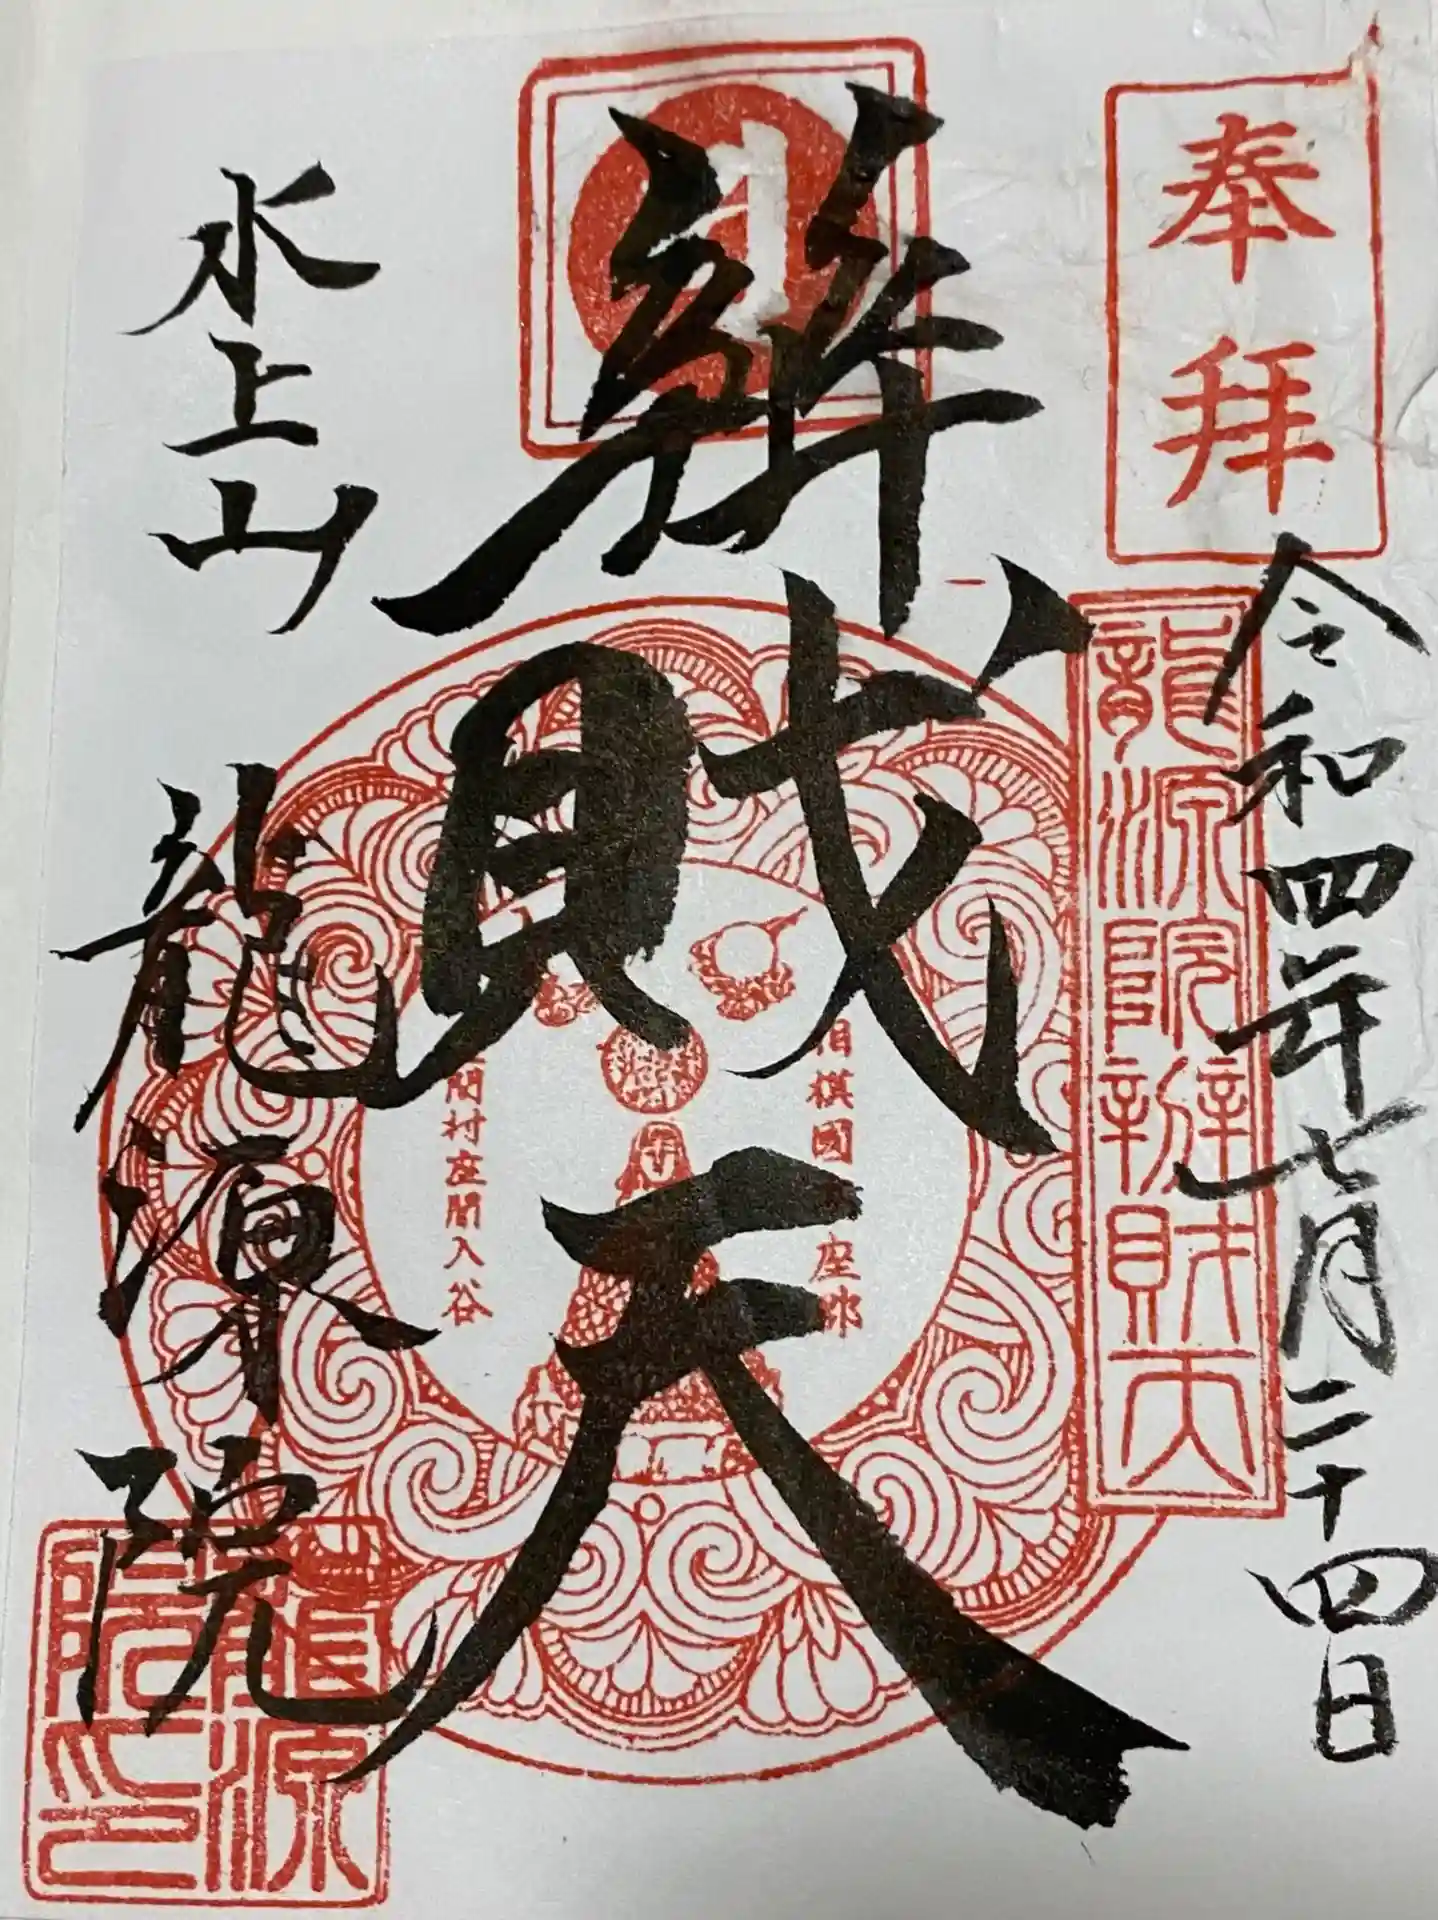 奉拝
令和四年七月二十四日
龍源院辨財天
辨財天
相模國
座郡
間村座間入谷
水上山
龍源院
龍源院印